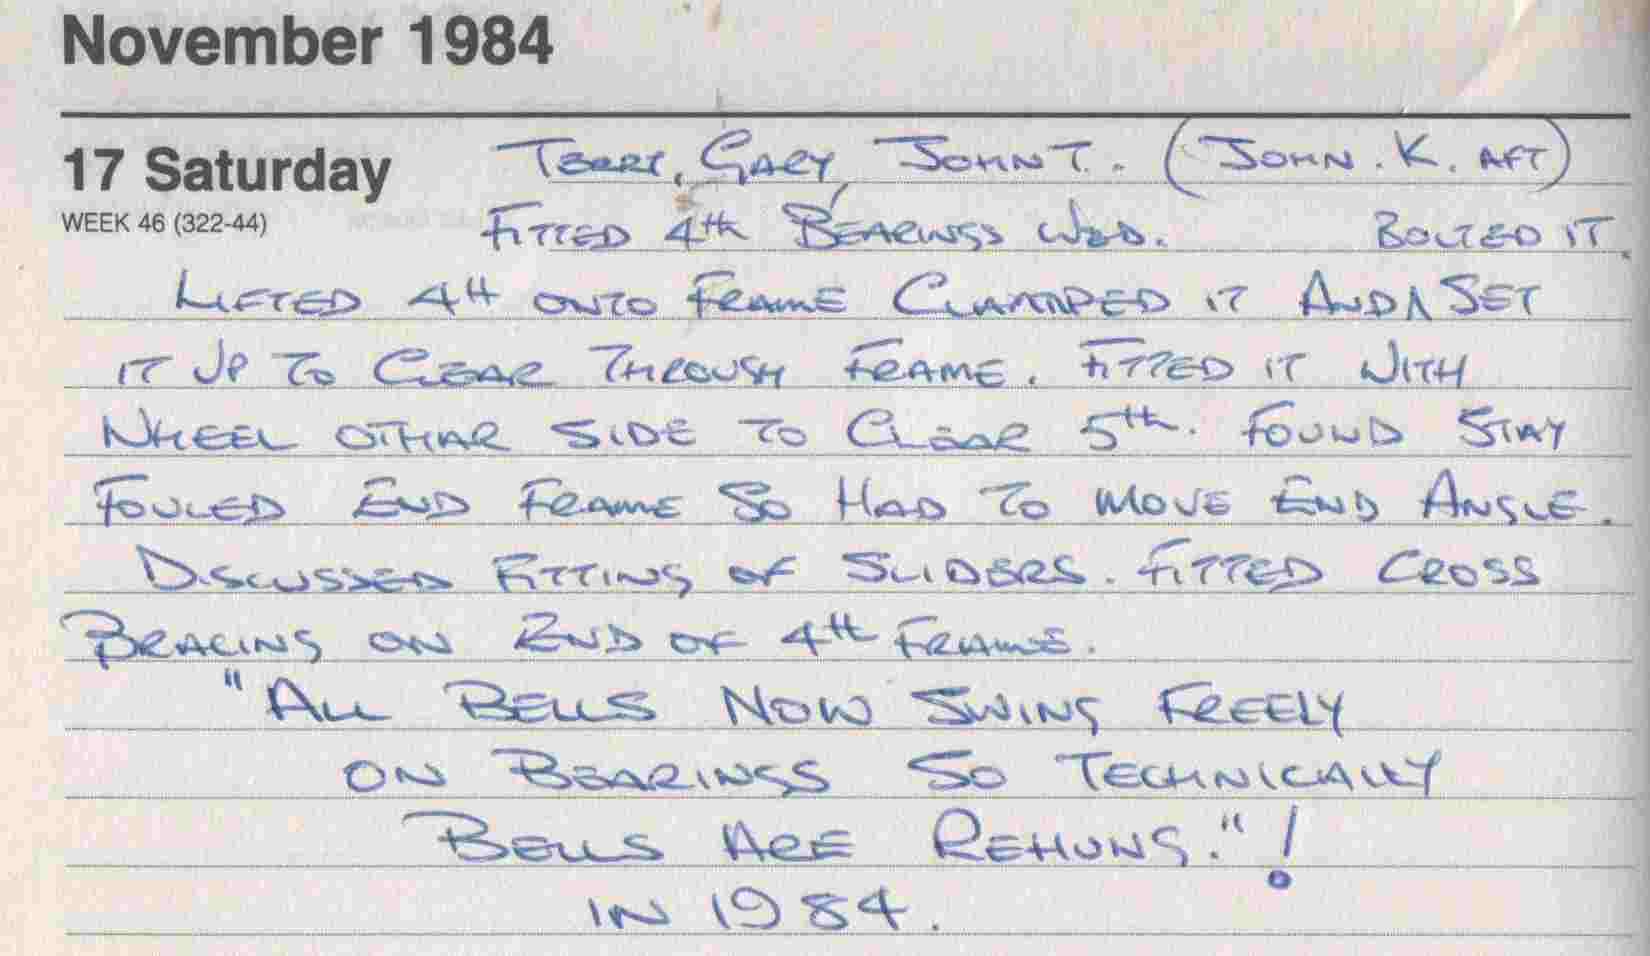 November 1984
17 Saturday
TERRY, GARY, JOHN T.. (JOHN. K. AFT)
WEEK 46 (322-44)
FITTED 4th BEARINGS WED. BOLTED IT
LIFTED 4TH ONTO FRAME CLAMPED IT AND ∧ SET
IT UP TO CLEAR THROUGH FRAME. FITTED IT WITH
WHEEL OTHAR SIDE TO CLEAR 5th. FOUND STAY
FOULED END FRAME SO HAD TO MOVE END ANGLE.
DISCUSSED FITTING OF SLIDERS. FITTED CROSS
BRACING ON END OF 4th FRAME.
"ALL BELLS NOW SWING FREELY
ON BEARINGS SO TECHNICALLY
BELLS ARE REHUNG." !
IN 1984.